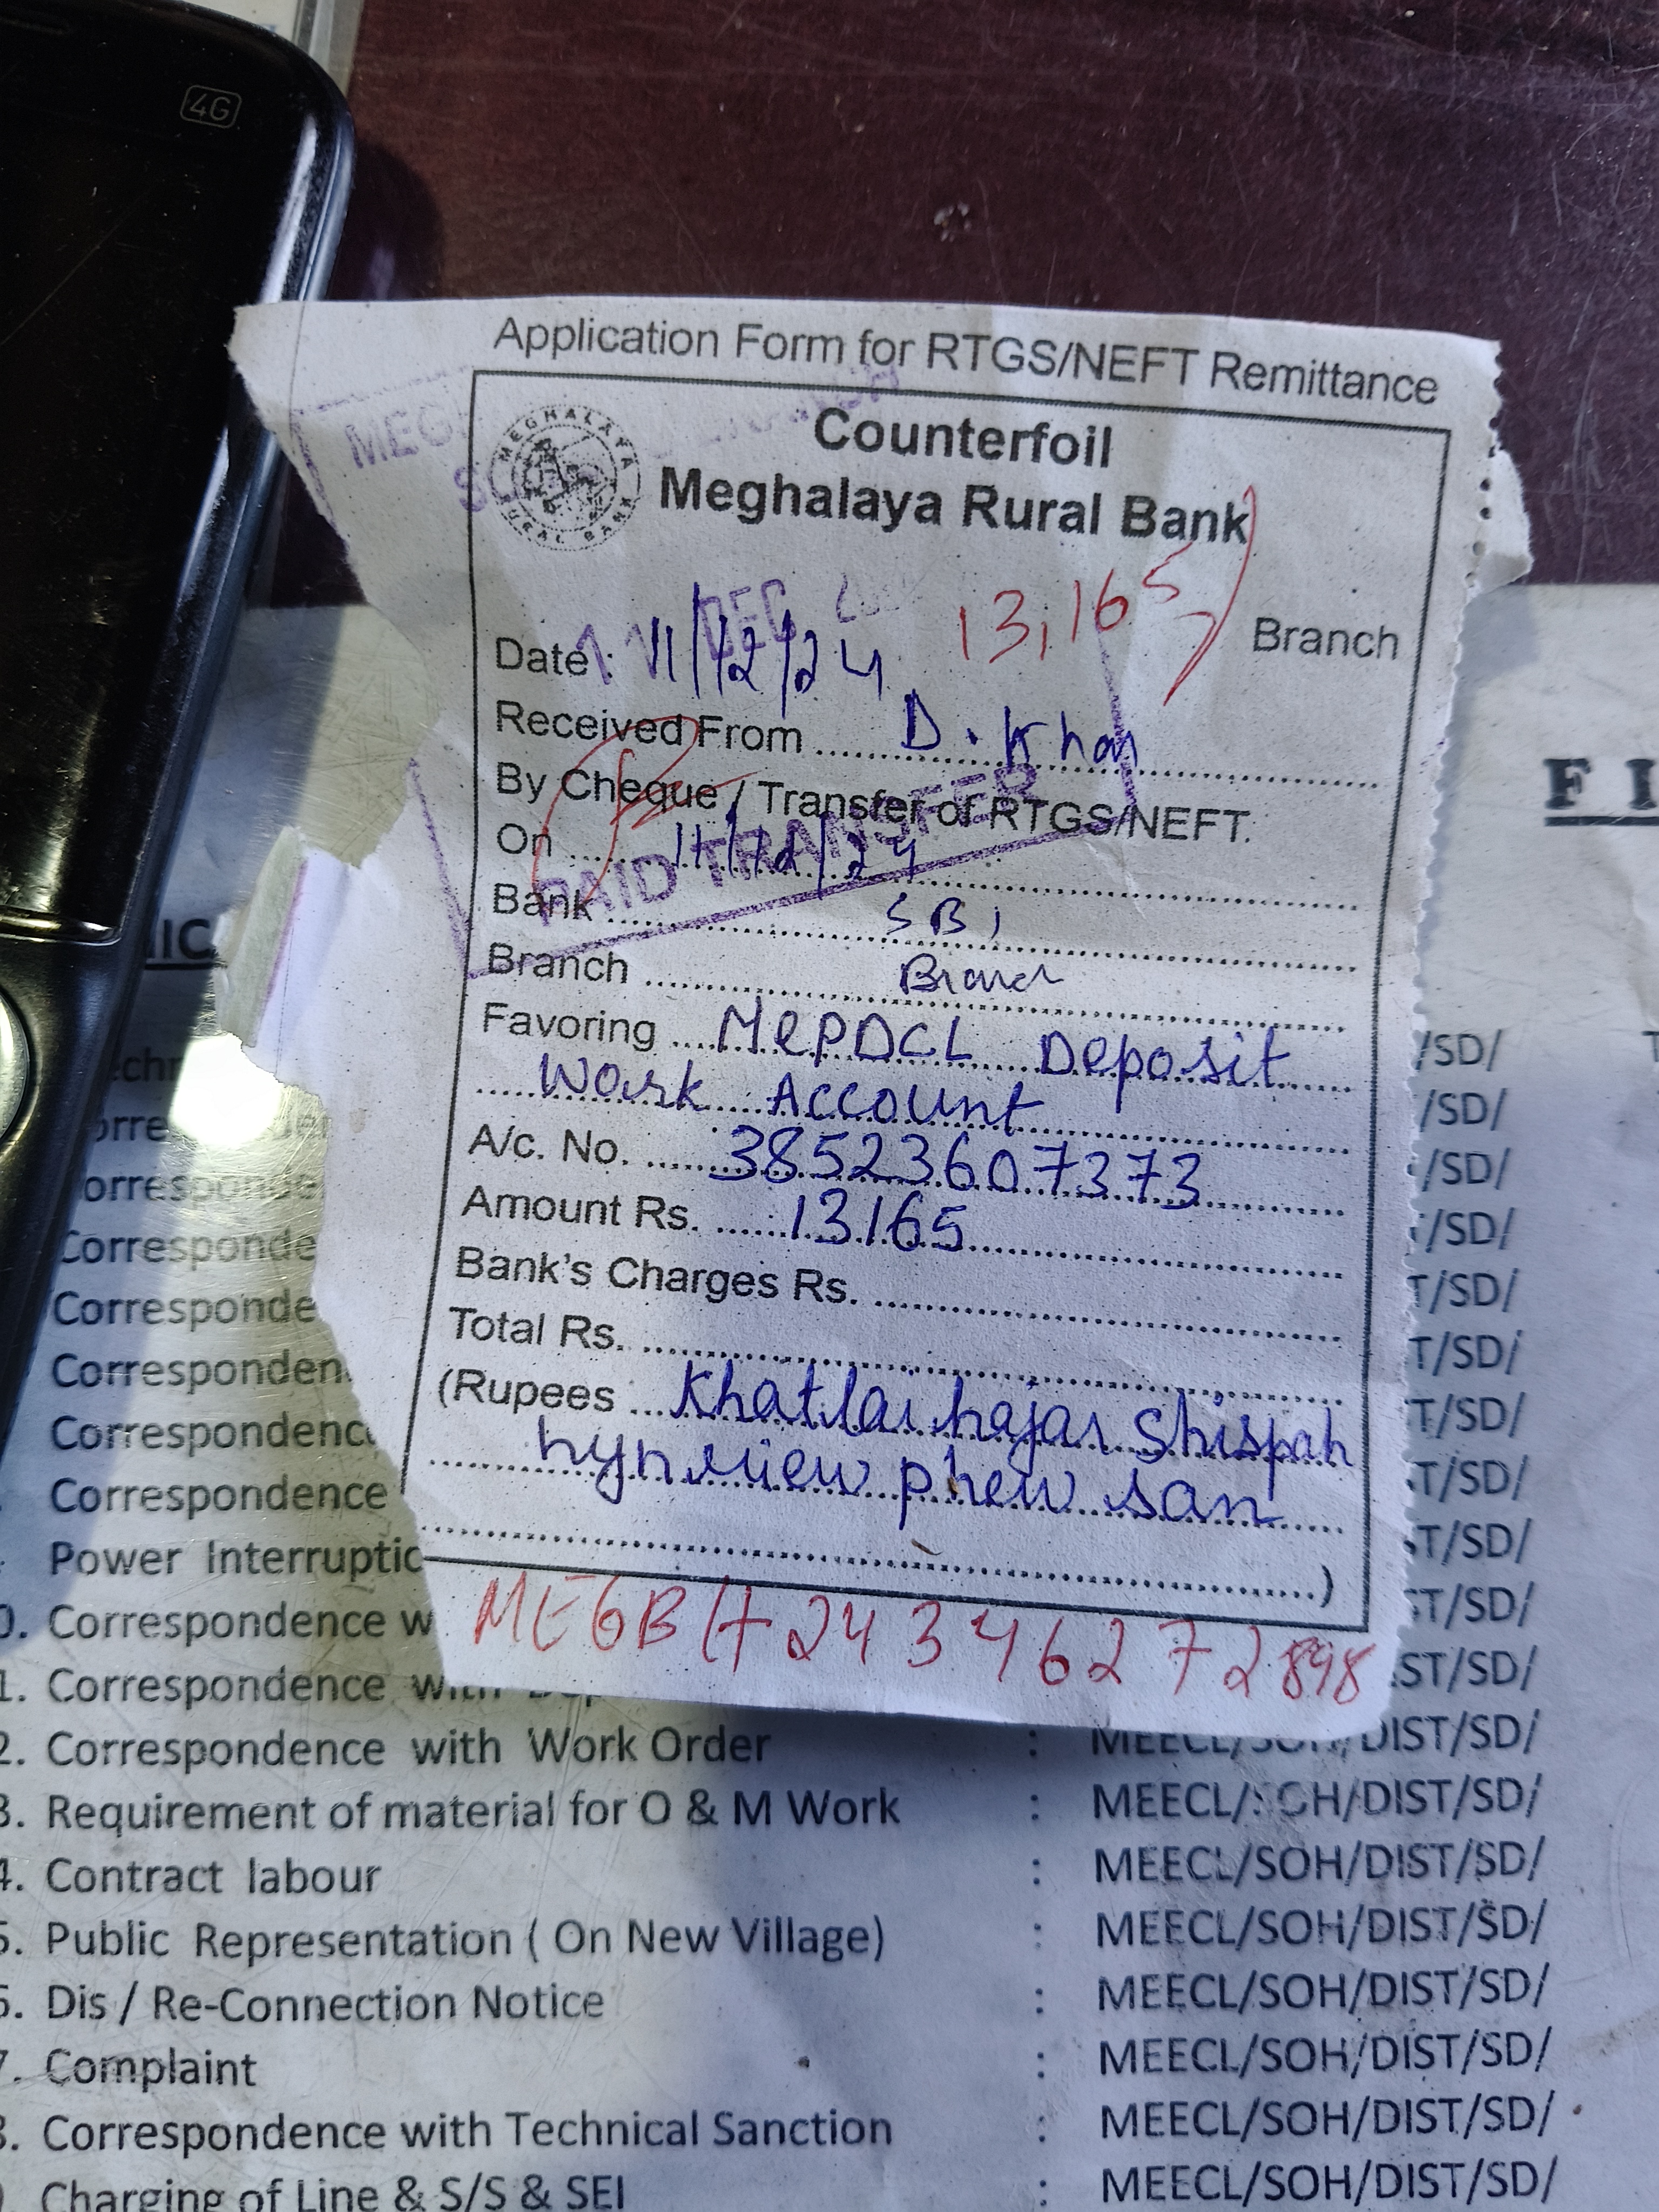 4G
Application Form for RTGS/NEFT Remittance
Counterfoil
MEGHALAYA RURAL BANK
Meghalaya Rural Bank
13,165
Branch
Date : 11/12/24
DEC
Received From D. Khar
By Cheque / Transfer of RTGS/NEFT.
On 11/12/24
PAID TRANSFER
Bank SBI
Branch
Favoring MePDCL Deposit
Work Account
A/c. No. 38523607373
Amount Rs. 13165
Bank's Charges Rs.
Total Rs.
(Rupees Khatlai hajar Shispah
hynriew phew san
)
MEGBH24346272898
FI
/SD/
/SD/
/SD/
Corresponde /SD/
Corresponde T/SD/
Corresponden T/SD/
Correspondenc T/SD/
Correspondence T/SD/
Power Interruptic ST/SD/
0. Correspondence w ST/SD/
1. Correspondence with ST/SD/
2. Correspondence with Work Order : MEECL/SOH/DIST/SD/
3. Requirement of material for O & M Work : MEECL/SOH/DIST/SD/
4. Contract labour : MEECL/SOH/DIST/SD/
5. Public Representation ( On New Village) : MEECL/SOH/DIST/SD/
6. Dis / Re-Connection Notice : MEECL/SOH/DIST/SD/
7. Complaint : MEECL/SOH/DIST/SD/
8. Correspondence with Technical Sanction : MEECL/SOH/DIST/SD/
Charging of Line & S/S & SEI : MEECL/SOH/DIST/SD/